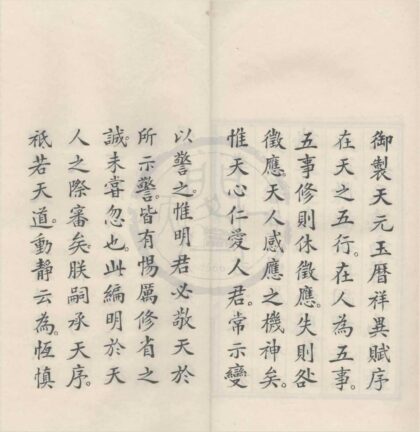 御製天元玉曆祥異賦序
在天之五行。在人為五事。
五事修則休徵應。失則咎
徵應。天人感應之機神矣。
惟天心仁愛人君。常示變
以警之。惟明君必敬天於
所示警。皆有惕厲修省之
誠。未嘗忽也。此編明於天
人之際審矣。朕嗣承天序。
祗若天道。動靜云為。恆慎